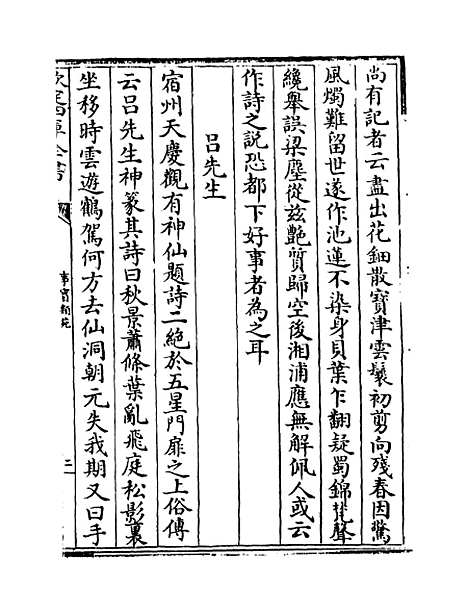 尚有記者云盡出花鈿散寶津雲鬟初剪向殘春因驚
風燭難留世遂作池蓮不染身貝葉乍翻疑蜀錦梵聲
纔舉誤梁塵從兹艶質歸空後湘浦應無解佩人或云
作詩之說恐都下好事者為之耳
呂先生
宿州天慶觀有神仙題詩二絶於五星門扉之上俗傳
云吕先生神篆其詩曰秋景蕭條葉亂飛庭松影裏
坐移時雲遊鶴駕何方去仙洞朝元失我期又曰手
欽定四庫全書
事實類苑
三